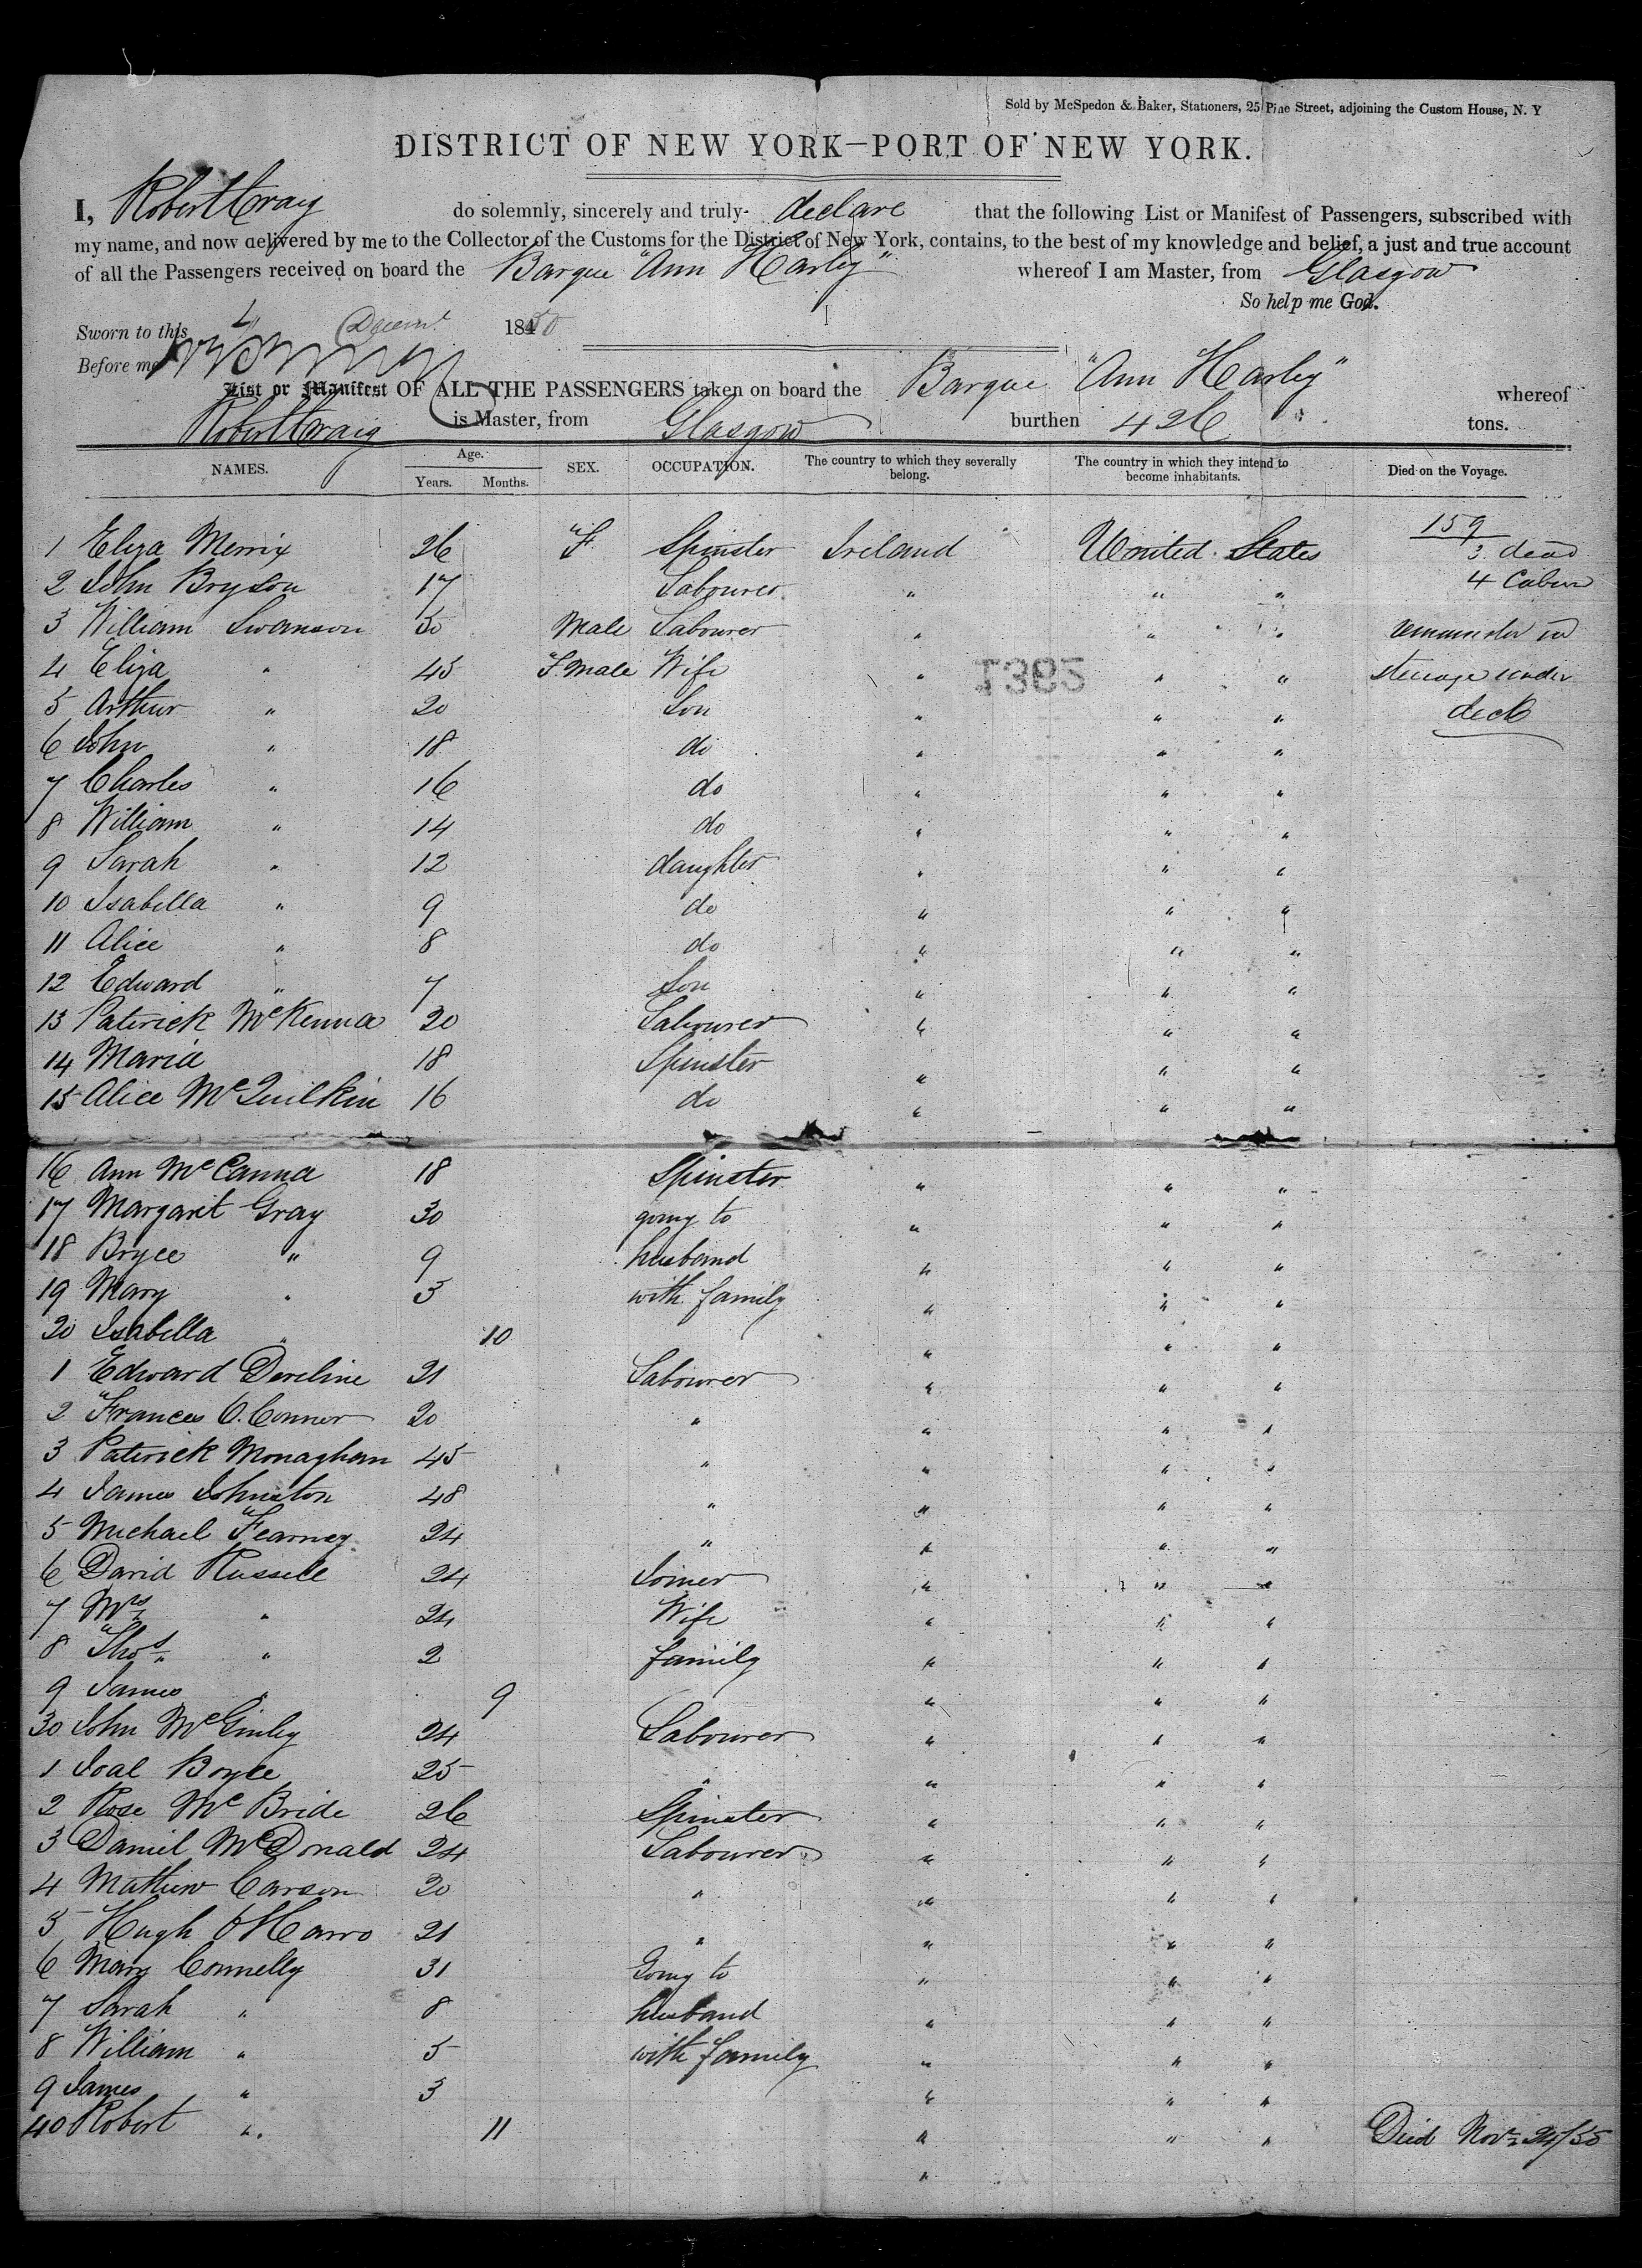 Sold by McSpedon & Baker, Stationers, 25 Pine Street, adjoining the Custom House, N. Y
DISTRICT OF NEW YORK—PORT OF NEW YORK.
I, Robert Craig do solemnly, sincerely and truly declare that the following List or Manifest of Passengers, subscribed with
my name, and now delivered by me to the Collector of the Customs for the District of New York, contains, to the best of my knowledge and belief, a just and true account
of all the Passengers received on board the Barque "Ann Harley" whereof I am Master, from Glasgow
So help me God.
Sworn to this 4 Decem. 1850
Before me
List or Manifest OF ALL THE PASSENGERS taken on board the Barque "Ann Harley" whereof
Robert Craig is Master, from Glasgow burthen 426 tons.
NAMES. Age. Years. Months. SEX. OCCUPATION. The country to which they severally belong. The country in which they intend to become inhabitants. Died on the Voyage.
159
1 Eliza Merrix 26 F Spinster Ireland United States 3 dead
2 John Bryson 17 Labourer " " " 4 Cabin
3 William Swanson 50 Male Labourer " " " remainder in
4 Eliza " 45 Fmale Wife " " " steerage under
1362
5 Arthur " 20 Son " " " deck
6 John " 18 do " " "
7 Charles " 16 do " " "
8 William " 14 do " " "
9 Sarah " 12 daughter " " "
10 Isabella " 9 do " " "
11 Alice " 8 do " " "
12 Edward " 7 Son " " "
13 Paterick McKenna 20 Labourer " " "
14 Maria 18 Spinster " " "
15 Alice McQuilkin 16 do " " "
16 Ann McCanna 18 Spinster " " "
17 Margaret Gray 30 going to " " "
18 Bryce " 9 husband " " "
19 Mary " 3 with family " " "
20 Isabella " 10 " " "
1 Edward Dereline 21 Labourer " " "
2 Frances O.Connor 20 " " " "
3 Paterick Monaghan 45 " " " "
4 James Johnston 48 " " " "
5 Michael Fearney 24 " " " "
6 David Russell 24 Joiner " " "
7 Mrs " 24 Wife " " "
8 Thos " 2 family " " "
9 James " 9 " " "
30 John McGinley 24 Labourer " " "
1 Joal Boyce 25 " " " "
2 Rose McBride 26 Spinster " " "
3 Daniel McDonald 24 Labourer " " "
4 Mathew Carson 20 " " " "
5 Hugh O'Harro 21 " " " "
6 Mary Connelly 31 Going to " " "
7 Sarah " 8 husband " " "
8 William " 5 with family " " "
9 James " 3 " " "
40 Robert " 11 " " " Died Nov. 24/50
"